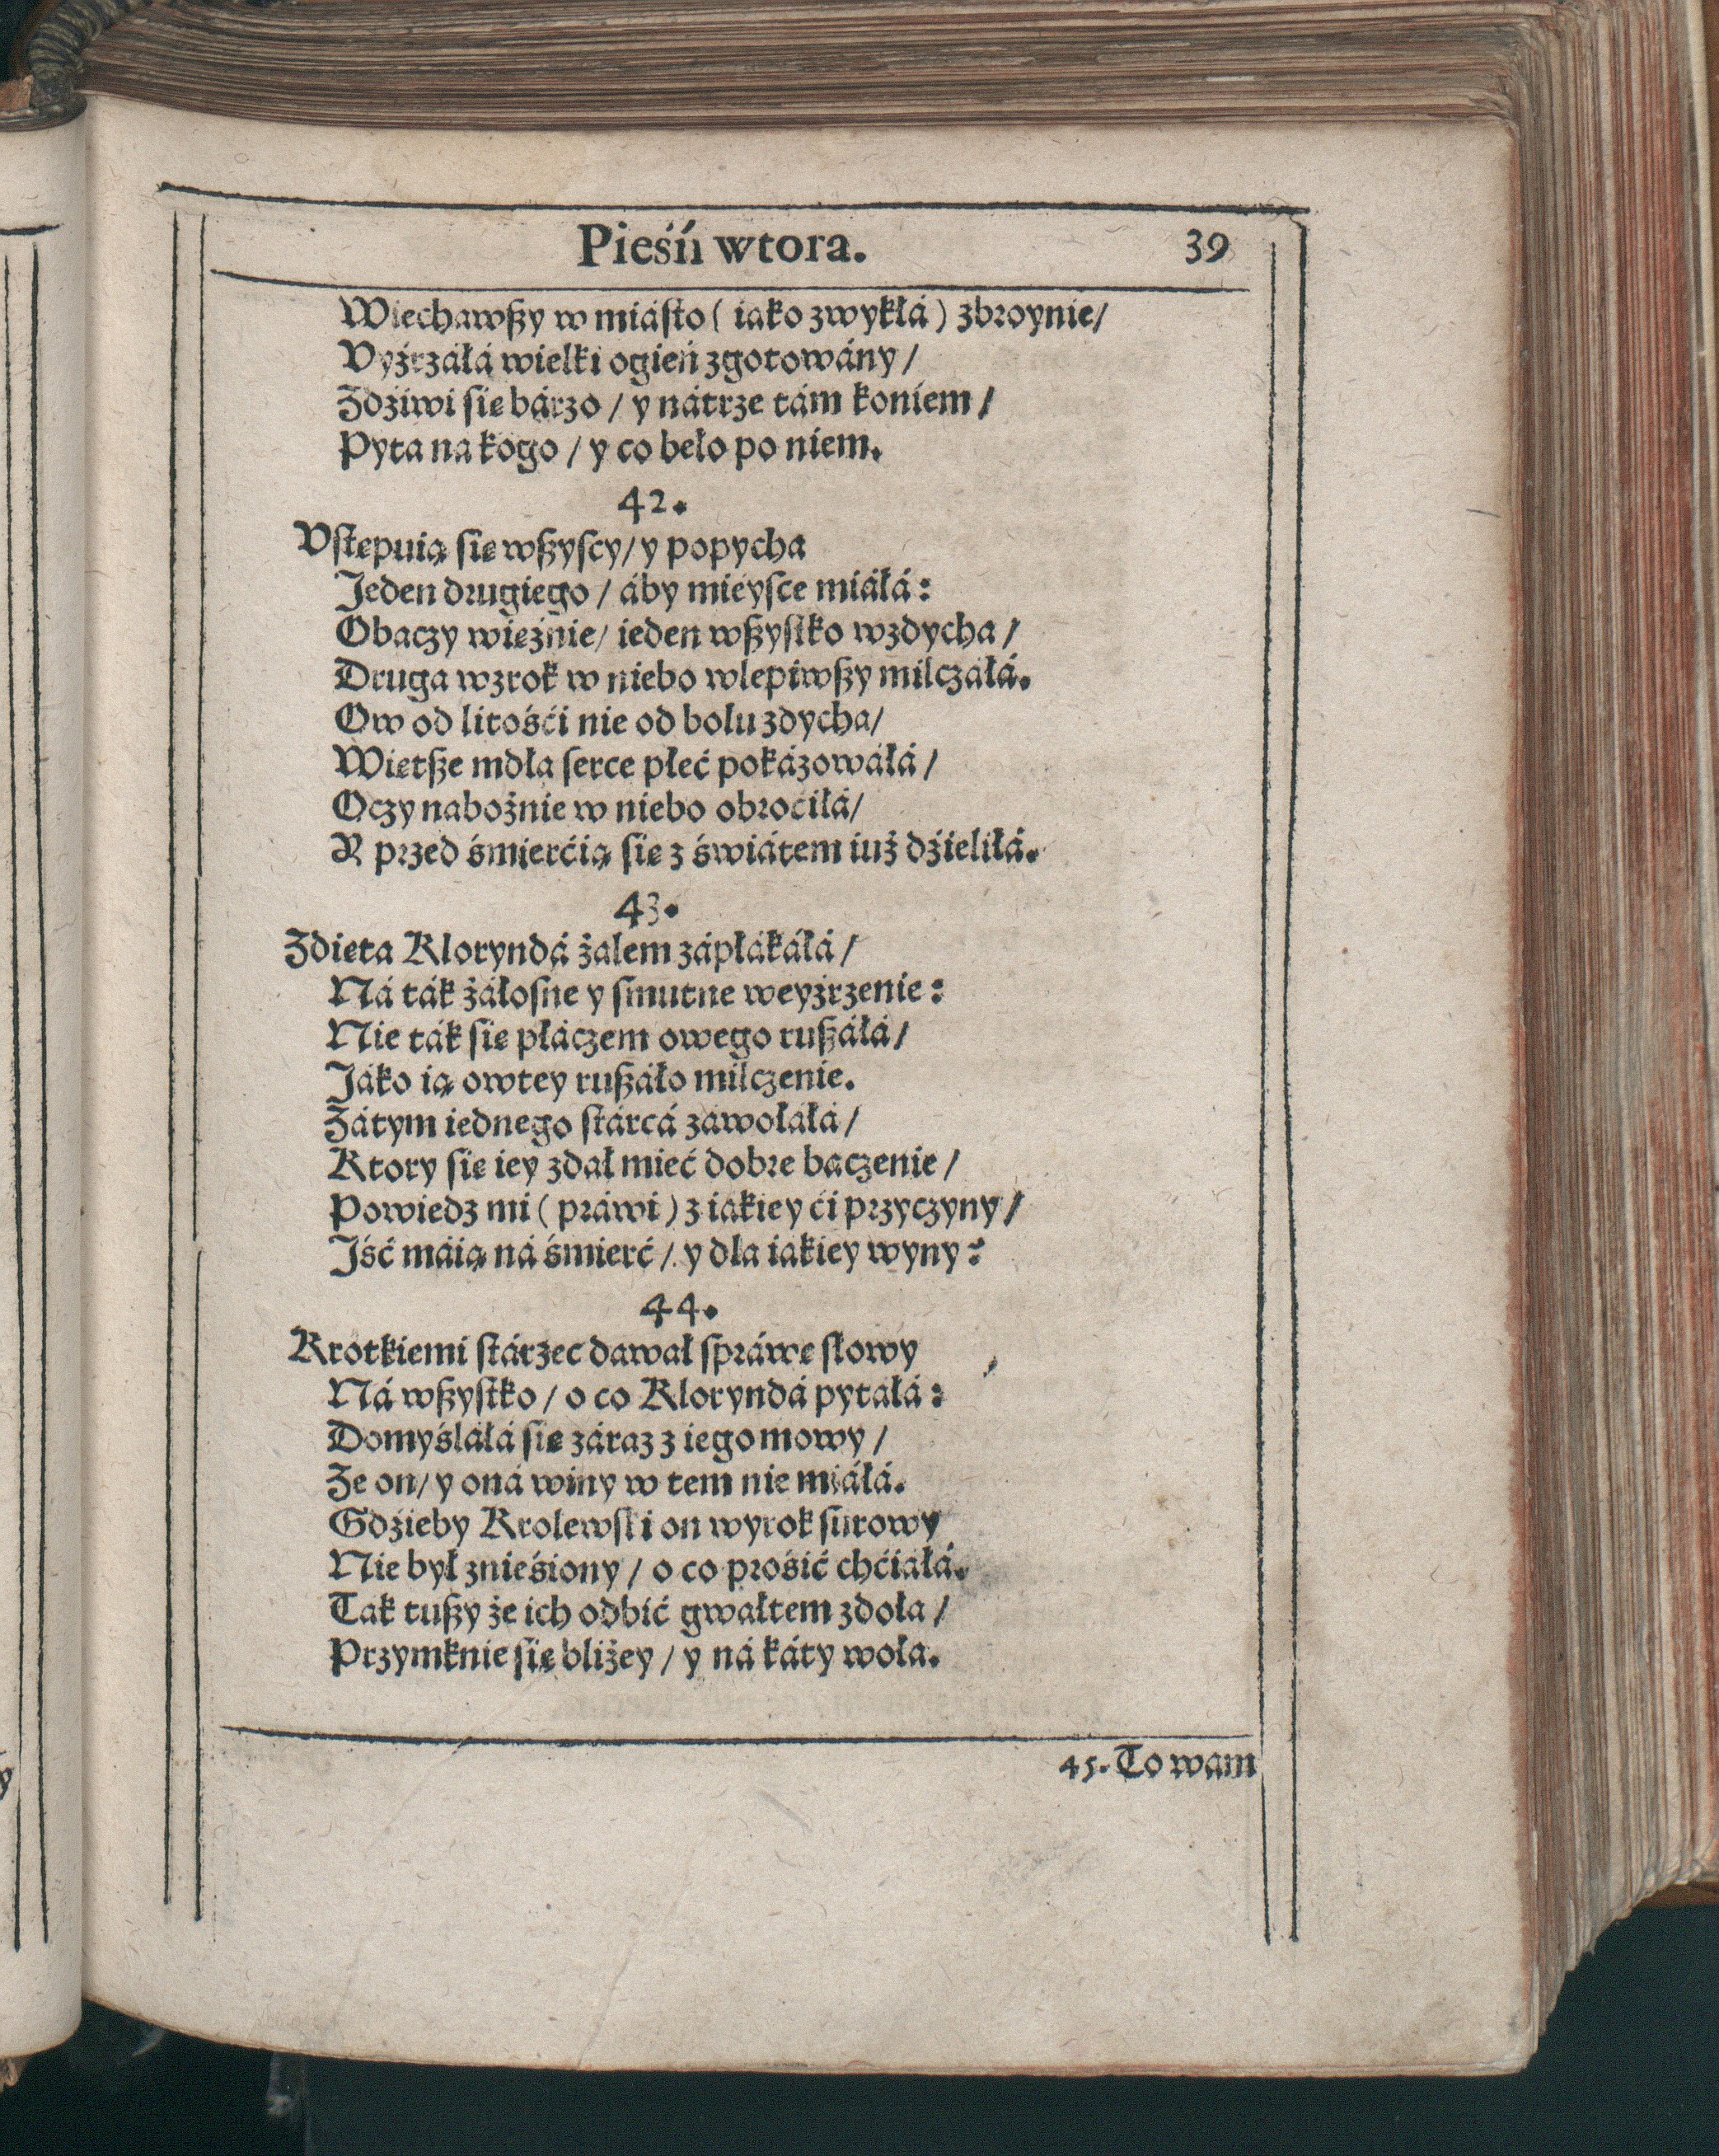 Pieśń wtora. 39
Wiechawszy w miásto ( iáko zwykłá ) zbroynie/
Vyźrzáłá wielki ogień zgotowány /
Zdźiwi się bárzo / y nátrze tám koniem /
Pyta na kogo / y co beło po niem.
42.
Vstępuią się wszyscy/ y popycha
Jeden drugiego / áby mieysce miáłá:
Obaczy więźnie/ ieden wszystko wzdycha /
Druga wzrok w niebo wlepiwszy milczáłá.
Ow od litośći nie od bolu zdycha/
Więtsze mdła serce płeć pokázowáłá /
Oczy nabożnie w niebo obroćiłá/
Y przed śmierćią się z świátem iuż dźieliłá.
43.
Zdięta Kloryndá żalem zápłákáłá /
Ná ták żáłosne y smutne weyźrzenie:
Nie ták się płáczem owego ruszáłá /
Jáko ią owtey ruszáło milczenie.
Zátym iednego stárcá záwołáłá /
Ktory się iey zdał mieć dobre baczenie /
Powiedz mi ( práwi ) z iákiey ći przyczyny /
Jść máią ná śmierć /. y dla iákiey wyny:
44.
Krotkiemi stárzec dawał spráwę słowy
Ná wszystko / o co Kloryndá pytáłá:
Domyśláłá się záraz z iego mowy /
Ze on/ y oná winy w tem nie miáłá.
Gdźieby Krolewski on wyrok surowy
Nie był znieśiony / o co prośić chćiáłá.
Tak tuszy że ich odbić gwałtem zdoła /
Przymknie się bliżey / y ná káty woła.
45. To wam
y